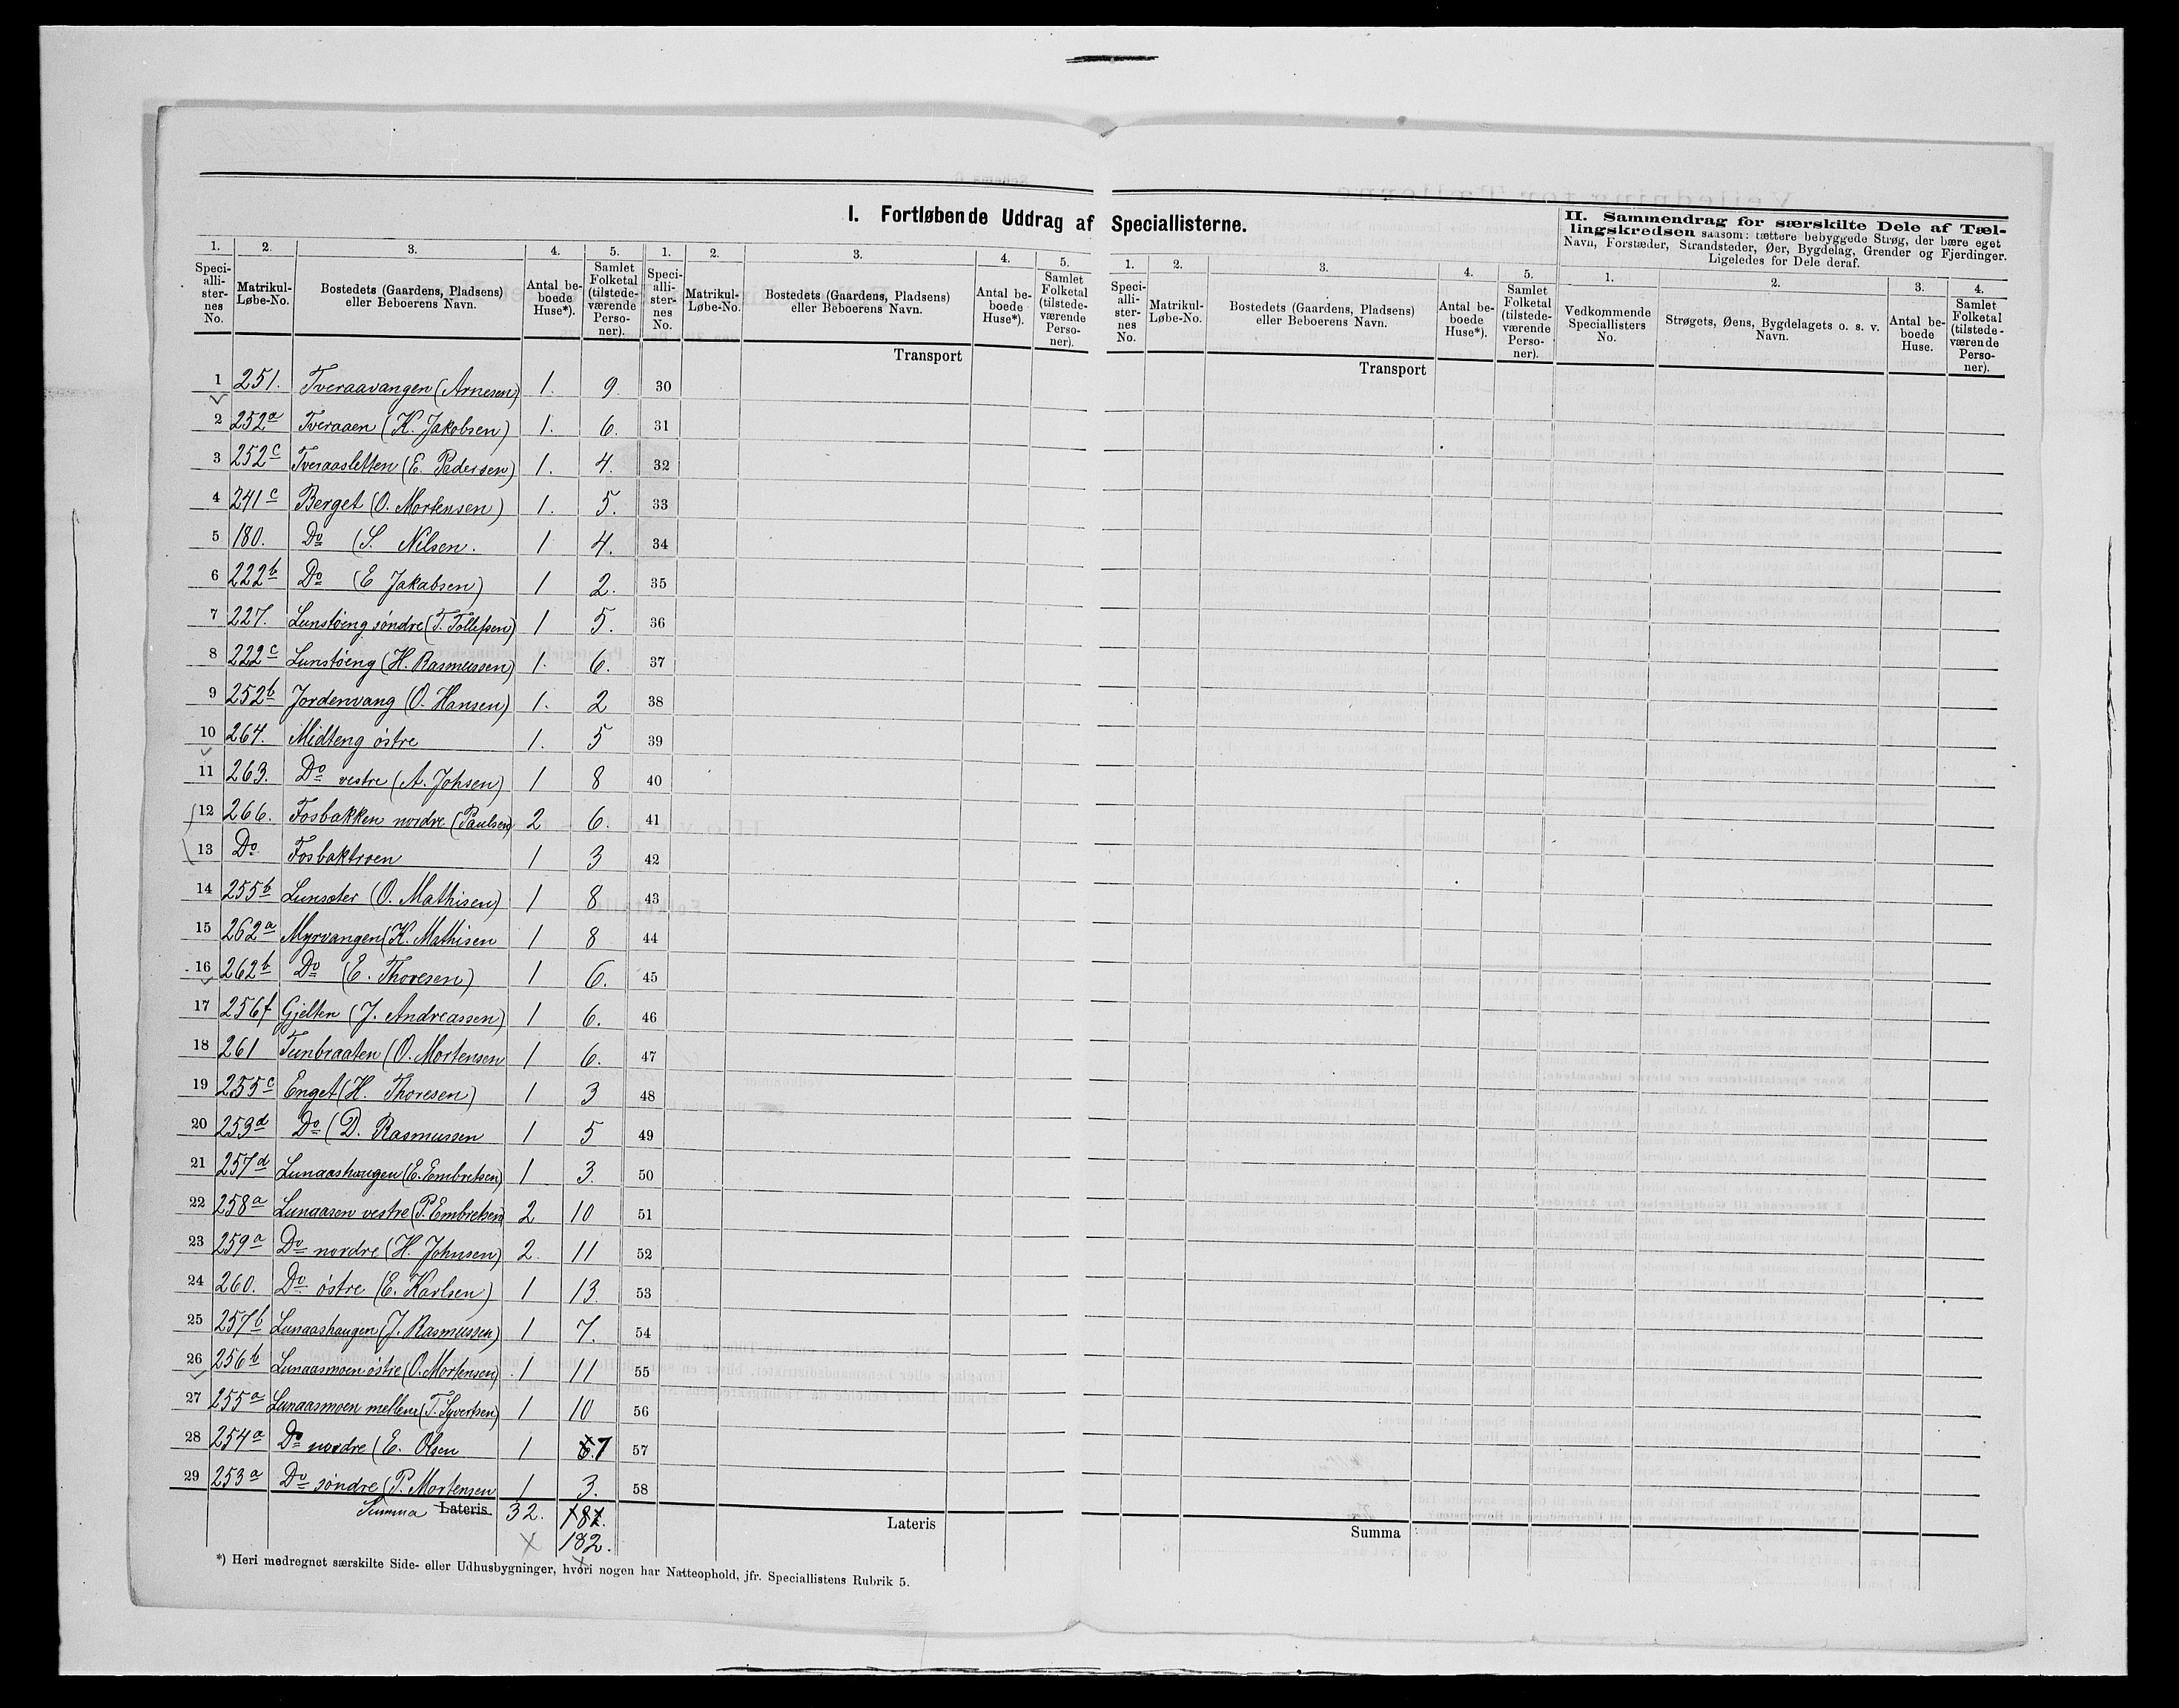 I. Fortløbende Uddrag af Speciallisterne.
II. Sammendrag for særskilte Dele af Tæl-
lingskredsen saasom: tættere bebyggede Strøg, der bære eget
Navn, Forstæder, Strandsteder, Øer, Bygdelag, Grender og Fjerdinger.
Ligeledes for Dele deraf.
1. 2. 3. 4. 5. 1. 2. 3. 4. 5. 1. 2. 3. 4. 5. 1. 2. 3. 4.
Speci-alli-ster-nes No. Matrikul-Løbe-No. Bostedets (Gaardens, Pladsens) eller Beboerens Navn. Antal be-boede Huse*). Samlet Folketal (tilstede-værende Perso-ner).
Speci-alli-ster-nes No. Matrikul-Løbe-No. Bostedets (Gaardens, Pladsens) eller Beboerens Navn. Antal be-boede Huse*). Samlet Folketal (tilstede-værende Perso-ner).
Speci-alli-ster-nes No. Matrikul-Løbe-No. Bostedets (Gaardens, Pladsens) eller Beboerens Navn. Antal be-boede Huse*). Samlet Folketal (tilstede-værende Perso-ner).
Vedkommende Speciallisters No. Strøgets, Øens, Bygdelagets o. s. v. Navn. Antal be-boede Huse. Samlet Folketal (tilstede-værende Perso-ner).
Transport Transport
1 251. Tveraavangen (Arnesen) 1. 9. 30
2 252a Tveraaen (K. Jakobsen) 1. 6. 31
3 252c Tveraasletten (E. Pedersen) 1. 4. 32
4 241c Berget (O. Mortensen) 1. 5. 33
5 180. Do (S. Nilsen. 1 4. 34
6 222b Do (E Jakabsen) 1 2. 35
7 227. Lunstøeng søndre (T. Tollefsen) 1 5. 36
8 222c Lunstøeng (H. Rasmussen) 1. 6. 37
9 252b Jordenvang (O. Hansen) 1. 2 38
10 264. Midteng østre 1. 5 39
11 263. Do vestre (A. Johsen) 1 8 40
12 266. Fosbakken nordre (Paulsen) 2 6. 41
13 Do Fosbaktroen 1 3 42
14 255b Lunsæter (O. Mathisen) 1 8 43
15 262a Myrvangen (K. Mathisen 1 8 44
16 262b Do (E. Thoresen) 1 6. 45
17 256f Gjelten (J. Andreassen) 1 6. 46
18 261 Tunbraaten (O. Mortensen 1 6. 47
19 255c Enget (H. Thoresen) 1 3 48
20 259d Do (D. Rasmussen 1 5 49
21 257d Lunaashaugen (E. Embretsen) 1 3. 50
22 258a Lunaasen vestre (P. Embretsen) 2 10 51
23 259a Do nordre (H. Johnsen) 2. 11 52
24 260. Do østre (E. Karlsen) 1 13. 53
25 257b Lunaashaugen (J. Rasmussen) 1 7. 54
26 256b Lunaasmoen østre (O. Mortensen) 1 11 55
27 255a Lunaasmoen mellem (T. Syvertsen) 1 10 56
28 254a Do nordre (E. Olsen 1 7 57
29 253a Do søndre (P. Mortensen 1 3. 58
Summa Lateris 32. 181. Lateris Summa
182.
*) Heri medregnet særskilte Side- eller Udhusbygninger, hvori nogen har Natteophold, jfr. Speciallistens Rubrik 5.